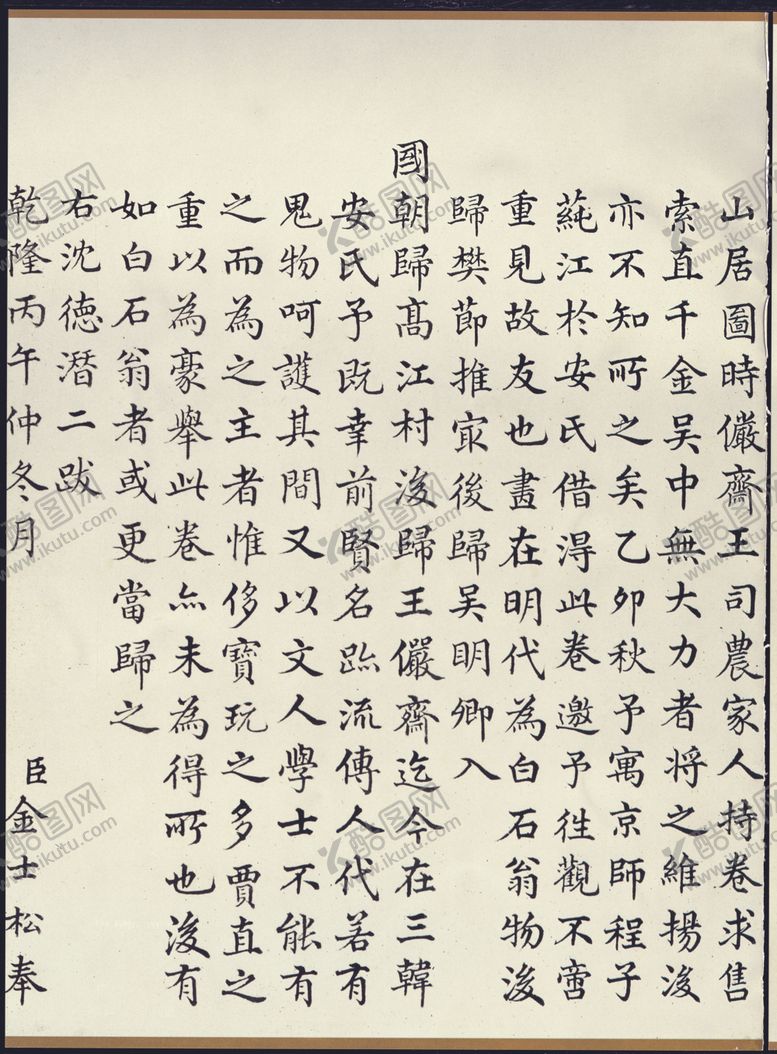 山居圖時儼齋王司農家人持卷求售
索直千金吳中無大力者將之維揚後
亦不知所之矣乙卯秋予寓京師程子
蒓江於安氏借得此卷邀予徃觀不啻
重見故友也畫在明代為白石翁物後
歸樊節推冣後歸吴明卿入
國朝歸髙江村後歸王儼齋迄今在三韓
安氏予既幸前賢名跡流傳人代若有
鬼物呵護其間又以文人學士不能有
之而為之主者惟侈寶玩之多賈直之
重以為豪舉此卷亦未為得所也後有
如白石翁者或更當歸之
右沈德潛二跋
乾隆丙午仲冬月
臣金士松奉
酷图网
www.ikutu.com